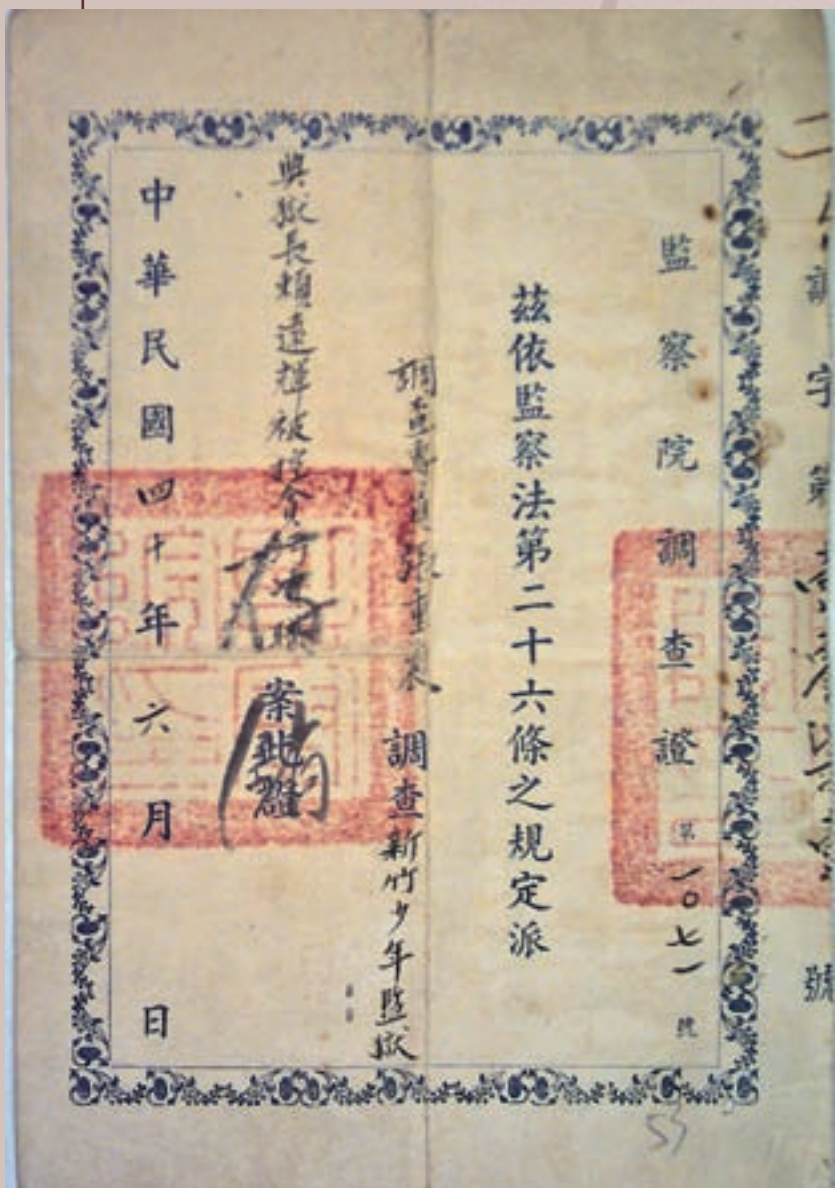 調字第 號
監察院調查證 第一〇七一號
茲依監察法第二十六條之規定派
調查專員張 調查新竹少年監獄
典獄長賴遠輝被控 案此證
中華民國四十年六月 日
53